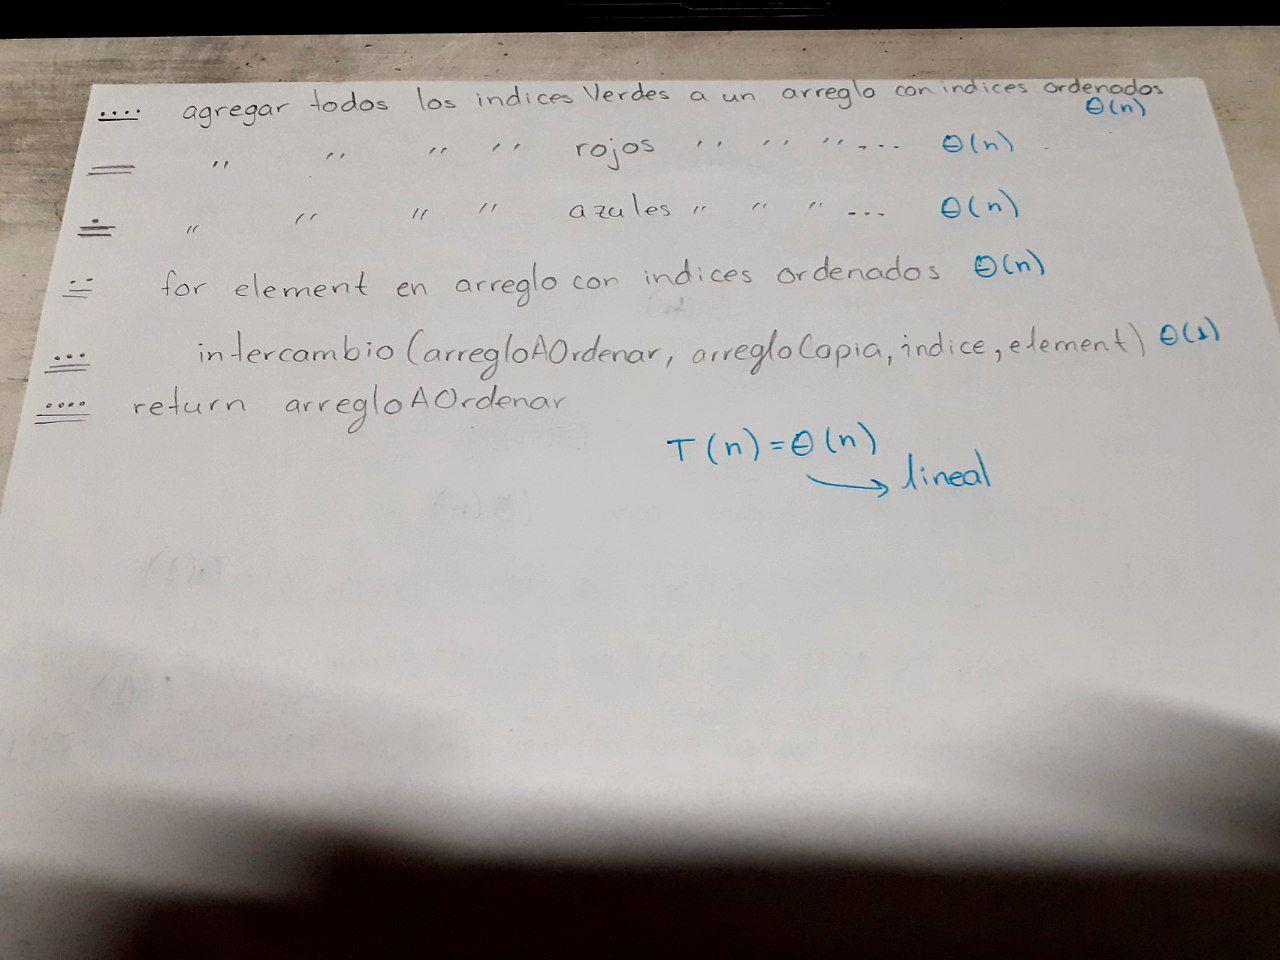 agregar todos los indices Verdes a un arreglo con indices ordenados Θ(n)
" " " " rojos " " " ... Θ(n)
" " " " azules " " " ... Θ(n)
for element en arreglo con indices ordenados Θ(n)
intercambio (arregloAOrdenar, arregloCopia, indice, element) Θ(1)
return arregloAOrdenar
T(n) = Θ(n)
lineal